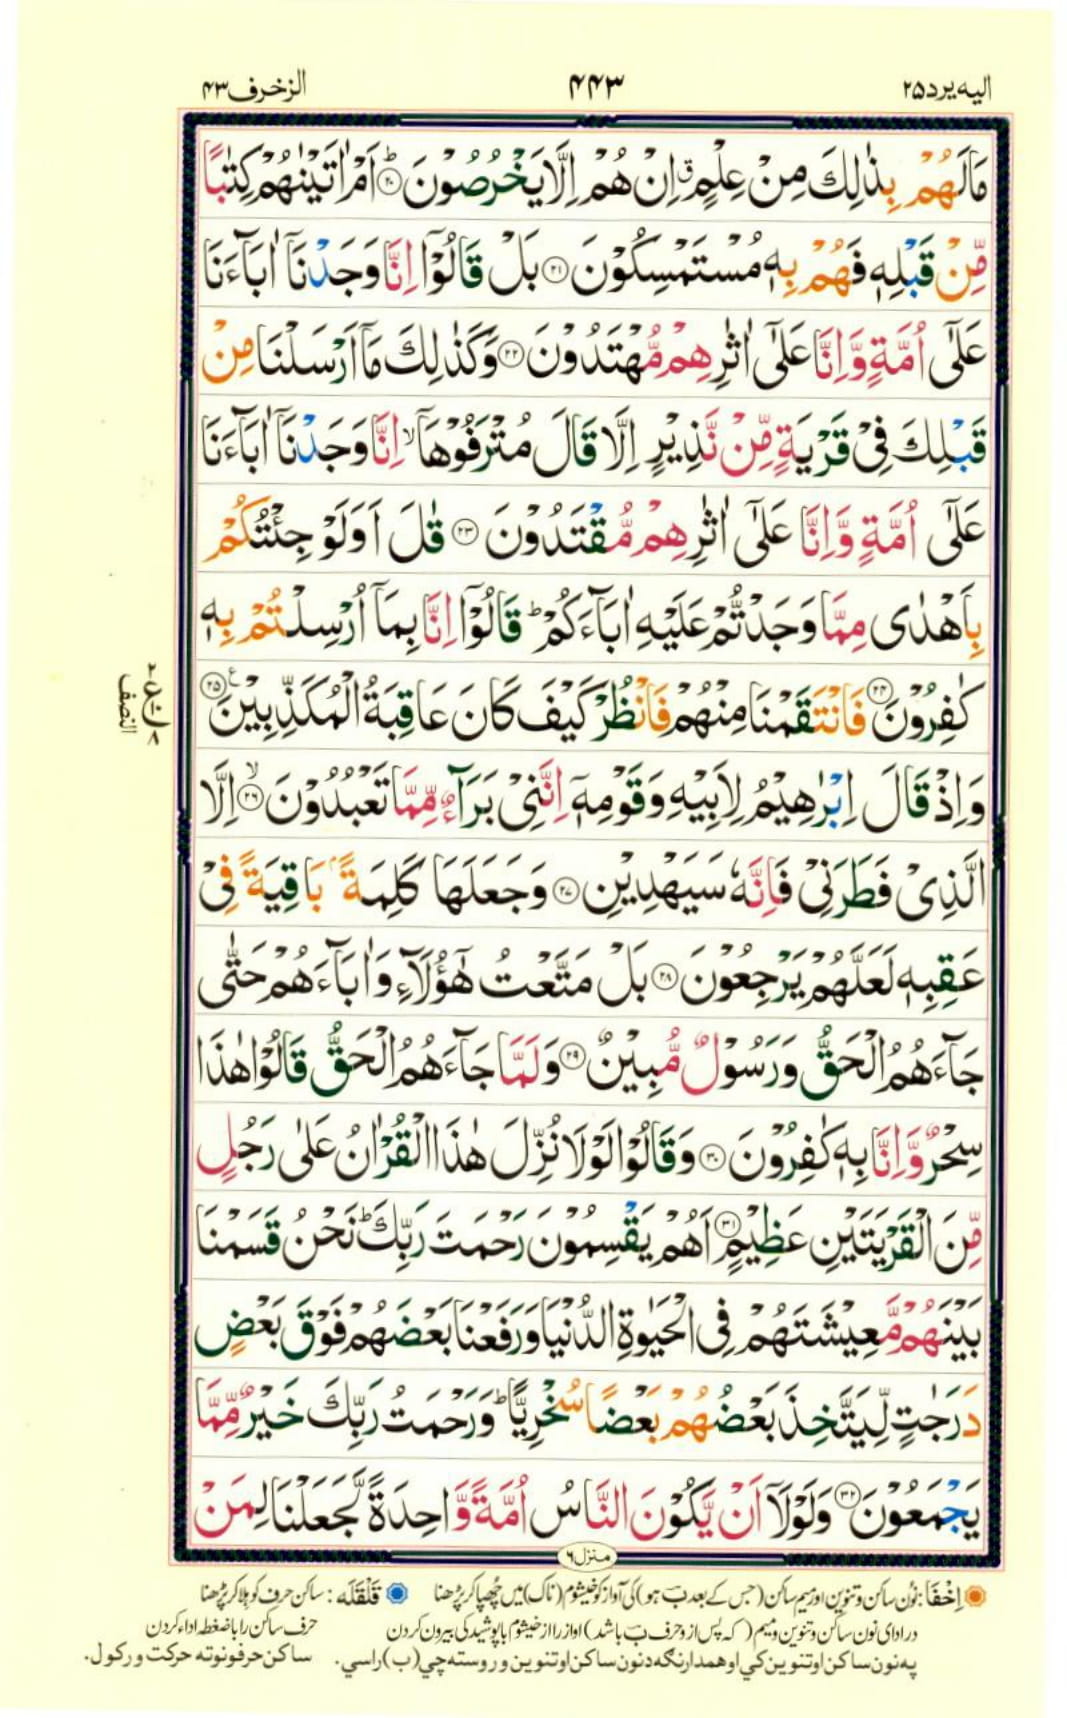 الیه یرد ۲۵
۴۴۳
الزخرف ۴۳
مَا لَهُمْ بِذٰلِكَ مِنْ عِلْمٍ ۗ اِنْ هُمْ اِلَّا يَخْرُصُوْنَ ؕ ۲۰ اَمْ اٰتَيْنٰهُمْ كِتٰبًا
مِّنْ قَبْلِهٖ فَهُمْ بِهٖ مُسْتَمْسِكُوْنَ ۲۱ بَلْ قَالُوْۤا اِنَّا وَجَدْنَاۤ اٰبَآءَنَا
عَلٰۤى اُمَّةٍ وَّاِنَّا عَلٰۤى اٰثٰرِهِمْ مُّهْتَدُوْنَ ۲۲ وَكَذٰلِكَ مَاۤ اَرْسَلْنَا مِنْ
قَبْلِكَ فِيْ قَرْيَةٍ مِّنْ نَّذِيْرٍ اِلَّا قَالَ مُتْرَفُوْهَاۤ ۙ اِنَّا وَجَدْنَاۤ اٰبَآءَنَا
عَلٰۤى اُمَّةٍ وَّاِنَّا عَلٰۤى اٰثٰرِهِمْ مُّقْتَدُوْنَ ۲۳ قٰلَ اَوَلَوْ جِئْتُكُمْ
بِاَهْدٰى مِمَّا وَجَدْتُّمْ عَلَيْهِ اٰبَآءَكُمْ ؕ قَالُوْۤا اِنَّا بِمَاۤ اُرْسِلْتُمْ بِهٖ
كٰفِرُوْنَ ۲۴ فَانْتَقَمْنَا مِنْهُمْ فَانْظُرْ كَيْفَ كَانَ عَاقِبَةُ الْمُكَذِّبِيْنَ ۲۵ ع
وَاِذْ قَالَ اِبْرٰهِيْمُ لِاَبِيْهِ وَقَوْمِهٖۤ اِنَّنِيْ بَرَآءٌ مِّمَّا تَعْبُدُوْنَ ۙ ۲۶ اِلَّا
الَّذِيْ فَطَرَنِيْ فَاِنَّهٗ سَيَهْدِيْنِ ۲۷ وَجَعَلَهَا كَلِمَةًۢ بَاقِيَةً فِيْ
عَقِبِهٖ لَعَلَّهُمْ يَرْجِعُوْنَ ۲۸ بَلْ مَتَّعْتُ هٰۤؤُلَآءِ وَاٰبَآءَهُمْ حَتّٰى
جَآءَهُمُ الْحَقُّ وَرَسُوْلٌ مُّبِيْنٌ ۲۹ وَلَمَّا جَآءَهُمُ الْحَقُّ قَالُوْا هٰذَا
سِحْرٌ وَّاِنَّا بِهٖ كٰفِرُوْنَ ۳۰ وَقَالُوْا لَوْلَا نُزِّلَ هٰذَا الْقُرْاٰنُ عَلٰى رَجُلٍ
مِّنَ الْقَرْيَتَيْنِ عَظِيْمٍ ۳۱ اَهُمْ يَقْسِمُوْنَ رَحْمَتَ رَبِّكَ ؕ نَحْنُ قَسَمْنَا
بَيْنَهُمْ مَّعِيْشَتَهُمْ فِى الْحَيٰوةِ الدُّنْيَا وَرَفَعْنَا بَعْضَهُمْ فَوْقَ بَعْضٍ
دَرَجٰتٍ لِّيَتَّخِذَ بَعْضُهُمْ بَعْضًا سُخْرِيًّا ؕ وَرَحْمَتُ رَبِّكَ خَيْرٌ مِّمَّا
يَجْمَعُوْنَ ۳۲ وَلَوْلَاۤ اَنْ يَّكُوْنَ النَّاسُ اُمَّةً وَّاحِدَةً لَّجَعَلْنَا لِمَنْ
النصف
منزل ۶
اِخْفَا: نُون ساکن وتنوین اور میم ساکن (جس کے بعد ب ہو) کی آواز کو خیشوم (ناک) میں چُھپا کر پڑھنا
قَلْقَلَه: ساکن حرف کو ہلا کر پڑھنا
در ادای نون ساکن وتنوین ومیم (که پس از و حرف ب باشد) اواز را از خیشوم با پوشیدگی بیرون کردن
حرف ساکن را با ضغطه اداء کردن
په نون ساکن او تنوین کي او همدارنګه د نون ساکن او تنوین وروسته چي (ب) راسي.
ساکن حرفونو ته حرکت ورکول.